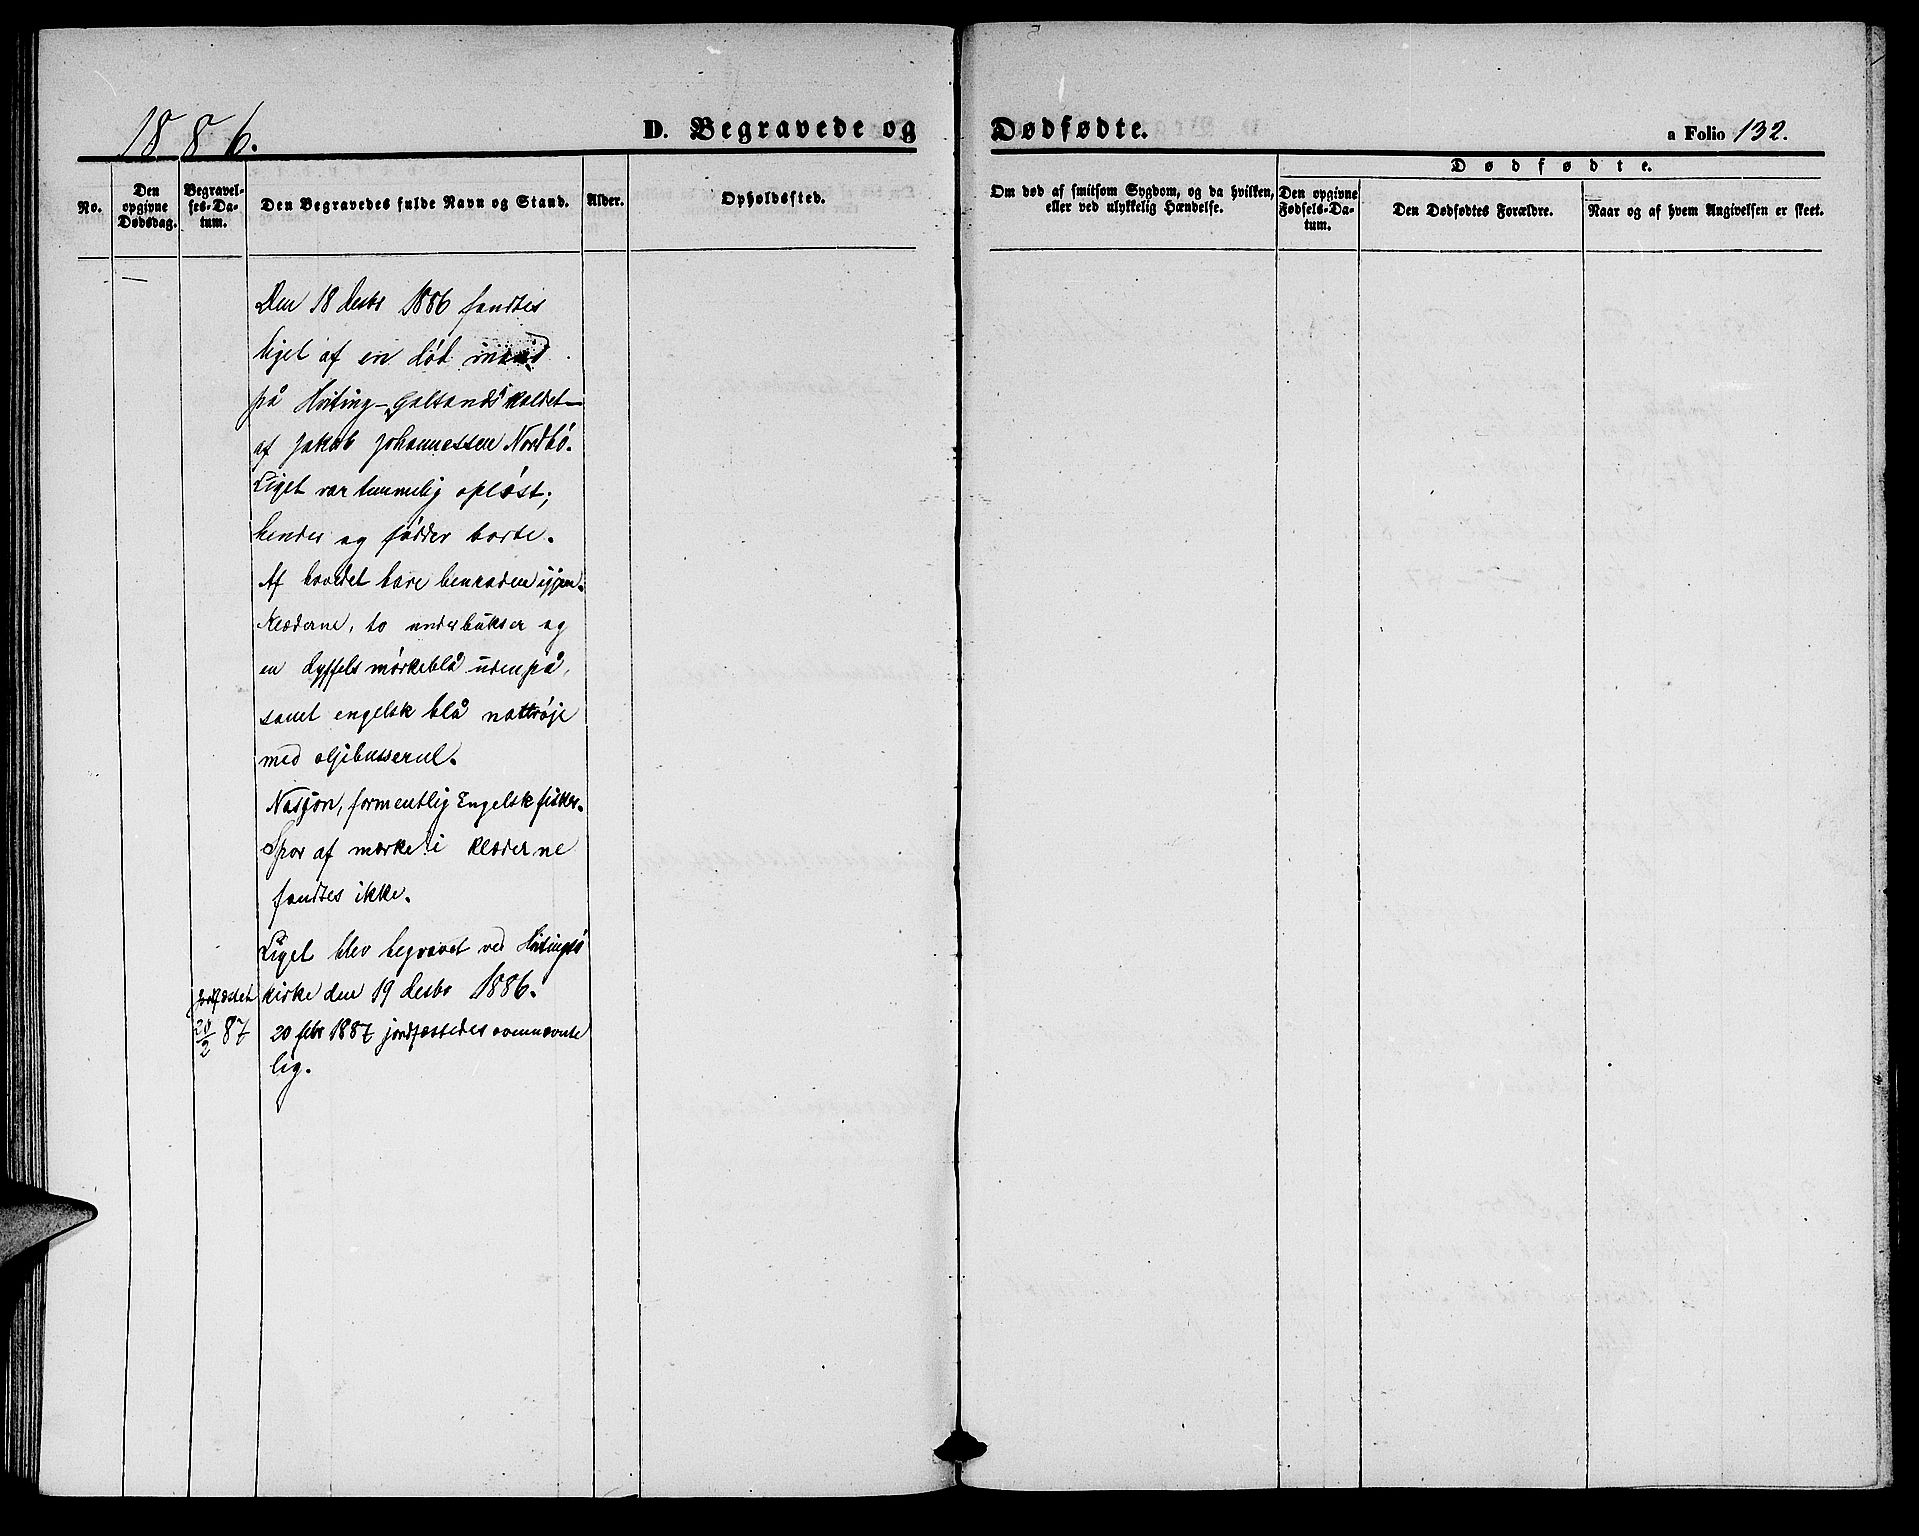 1886.
D. Begravede og
Dødfødte.
a Folio 132.
No.
Den opgivne Dødsdag.
Begravelses-Datum.
Den Begravedes fulde Navn og Stand.
Alder.
Opholdssted.
Om død af smitsom Sygdom, og da hvilken, eller ved ulykkelig Hændelse.
Dødfødte.
Den opgivne Fødsels-Datum.
Den Dødfødtes Forældre.
Naar og af hvem Angivelsen er skeet.
Den 18 desbr 1886 fandtes
liget af en død mand
på Hviting- "Galtands" kaldet-
af Jakob Johannessen Nordbö.
Liget var temmelig opløst;
hender og födder borte.
Af hovedet bare benraden igjen.
Klæderne, to underbukser og
en dyffels mörkeblå udenpå,
samt engelsk blå nattröje
med oljebusserul.
Nasjon, formentlig Engelsk fisker.
Spor af mærke i klæderne
fandtes ikke.
Liget blev begravet ved Hvitingsö
kirke den 19 desbr 1886.
Jordfæstet
20/2 87
20 febr 1887 jordfæstedes ovennævnte
lig.